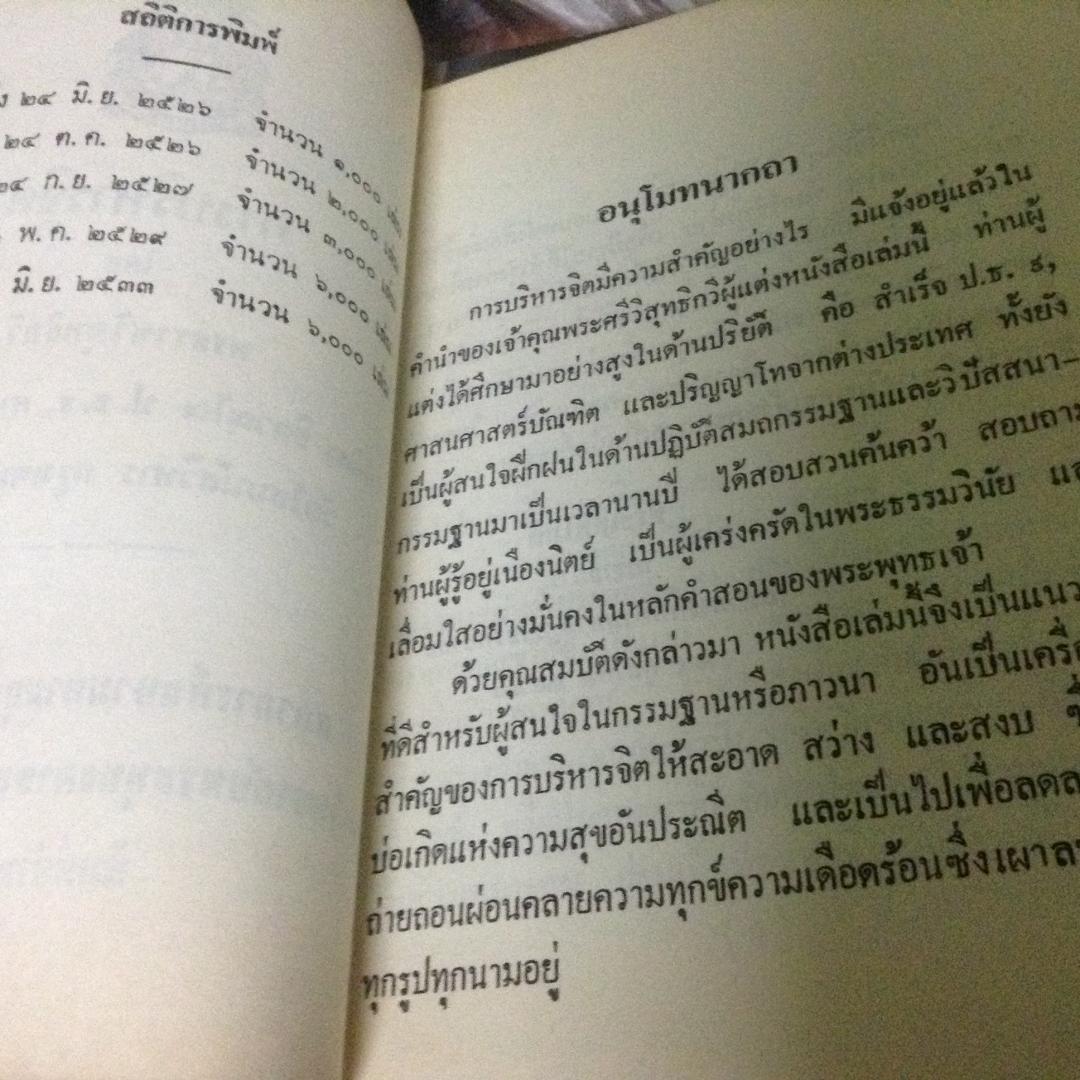 สถิติการพิมพ์
๒๔ มิ. ย. ๒๕๒๖ จำนวน ๑,๐๐๐
๒๔ ต. ค. ๒๕๒๖ จำนวน ๒,๐๐๐
๒๔ ก. ย. ๒๕๒๗ จำนวน ๓,๐๐๐
พ. ค. ๒๕๒๙ จำนวน ๖,๐๐๐
มิ. ย. ๒๕๓๓ จำนวน ๖,๐๐๐
อนุโมทนากถา
การบริหารจิตมีความสำคัญอย่างไร มีแจ้งอยู่แล้วใน
คำนำของเจ้าคุณพระศรีวิสุทธิกวีผู้แต่งหนังสือเล่มนี้ ท่านผู้
แต่งได้ศึกษามาอย่างสูงในด้านปริยัติ คือ สำเร็จ ป.ธ. ๙,
ศาสนศาสตร์บัณฑิต และปริญญาโทจากต่างประเทศ ทั้งยัง
เป็นผู้สนใจฝึกฝนในด้านปฏิบัติสมถกรรมฐานและวิปัสสนา-
กรรมฐานมาเป็นเวลานานปี ได้สอบสวนค้นคว้า สอบถาม
ท่านผู้รู้อยู่เนืองนิตย์ เป็นผู้เคร่งครัดในพระธรรมวินัย
เลื่อมใสอย่างมั่นคงในหลักคำสอนของพระพุทธเจ้า
ด้วยคุณสมบัติดังกล่าวมา หนังสือเล่มนี้จึงเป็นแนว
ที่ดีสำหรับผู้สนใจในกรรมฐานหรือภาวนา อันเป็น
สำคัญของการบริหารจิตให้สะอาด สว่าง และสงบ
บ่อเกิดแห่งความสุขอันประณีต และเป็นไปเพื่อลด
ถ่ายถอนผ่อนคลายความทุกข์ความเดือดร้อนซึ่งเผา
ทุกรูปทุกนามอยู่